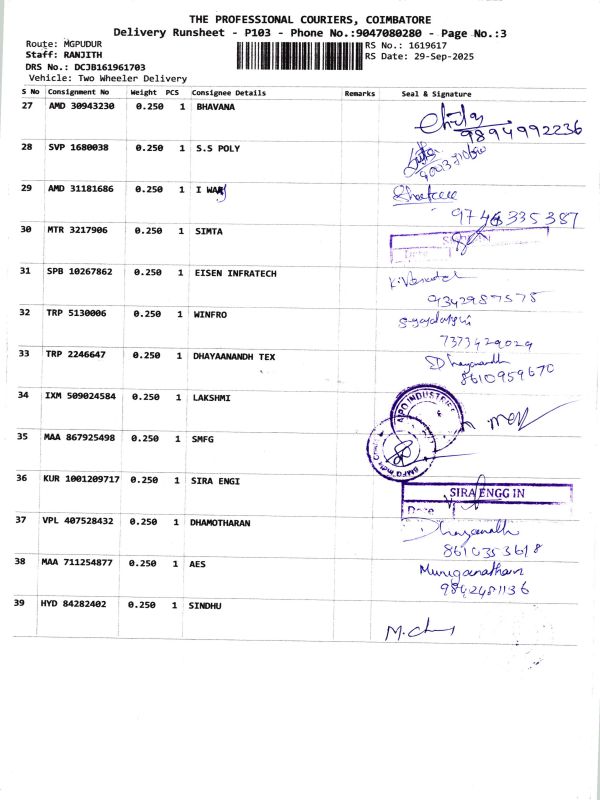 THE PROFESSIONAL COURIERS, COIMBATORE
Delivery Runsheet - P103 - Phone No.:9047080280 - Page No.:3
Route: MGPUDUR RS No.: 1619617
Staff: RANJITH RS Date: 29-Sep-2025
DRS No.: DCJB161961703
Vehicle: Two Wheeler Delivery
S No Consignment No Weight PCS Consignee Details Remarks Seal & Signature
27 AMD 30943230 0.250 1 BHAVANA
9894992236
28 SVP 1680038 0.250 1 S.S POLY
29 AMD 31181686 0.250 1 I WAY
9746335387
30 MTR 3217906 0.250 1 SIMTA
31 SPB 10267862 0.250 1 EISEN INFRATECH
9342987578
32 TRP 5130006 0.250 1 WINFRO
7373429029
33 TRP 2246647 0.250 1 DHAYAANANDH TEX Dhayanandh
8610959670
34 IXM 509024584 0.250 1 LAKSHMI
35 MAA 867925498 0.250 1 SMFG
36 KUR 1001209717 0.250 1 SIRA ENGI SIRA ENGG IN
Date
37 VPL 407528432 0.250 1 DHAMOTHARAN
8610353618
38 MAA 711254877 0.250 1 AES Muruganatham
9842481136
39 HYD 84282402 0.250 1 SINDHU